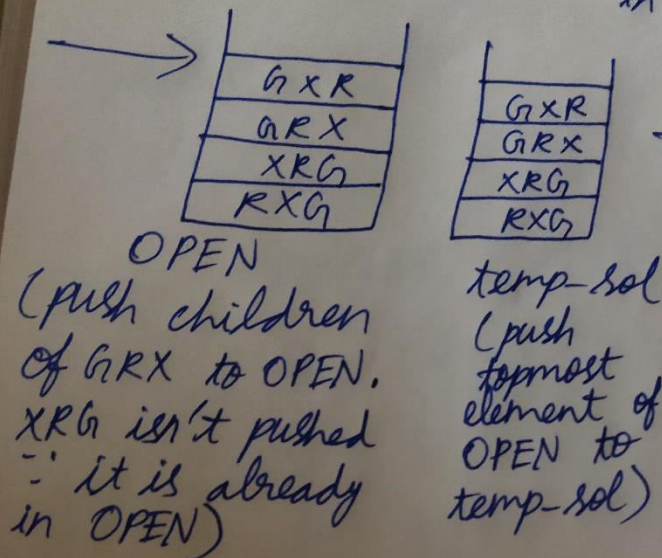 GXR
GRX
XRG
RXG
OPEN
(push children
of GRX to OPEN.
XRG isn't pushed
∵ it is already
in OPEN)
GXR
GRX
XRG
RXG
temp-sol
(push
topmost
element of
OPEN to
temp-sol)